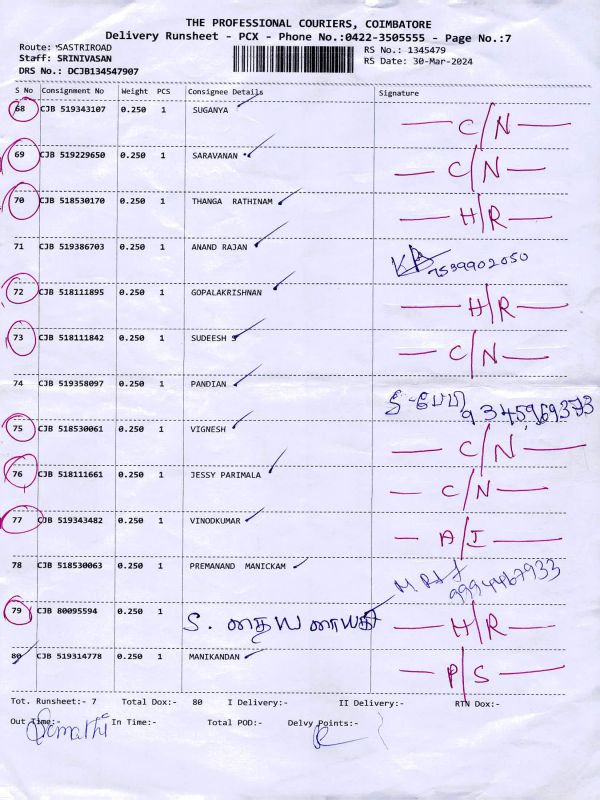 THE PROFESSIONAL COURIERS, COIMBATORE
Delivery Runsheet - PCX - Phone No.:0422-3505555 - Page No.:7
Route: SASTRIROAD RS No.: 1345479
Staff: SRINIVASAN RS Date: 30-Mar-2024
DRS No.: DCJB134547907
S No Consignment No Weight PCS Consignee Details Signature
68 CJB 519343107 0.250 1 SUGANYA C/N
69 CJB 519229650 0.250 1 SARAVANAN C/N
70 CJB 518530170 0.250 1 THANGA RATHINAM H/R
71 CJB 519386703 0.250 1 ANAND RAJAN 7539902050
72 CJB 518111895 0.250 1 GOPALAKRISHNAN H/R
73 CJB 518111842 0.250 1 SUDEESH S C/N
74 CJB 519358097 0.250 1 PANDIAN 9345969373
75 CJB 518530061 0.250 1 VIGNESH C/N
76 CJB 518111661 0.250 1 JESSY PARIMALA C/N
77 CJB 519343482 0.250 1 VINODKUMAR A/I
78 CJB 518530063 0.250 1 PREMANAND MANICKAM 9994467933
79 CJB 80095594 0.250 1 S. தைய நாயகி H/R
80 CJB 519314778 0.250 1 MANIKANDAN P/S
Tot. Runsheet:- 7 Total Dox:- 80 I Delivery:- II Delivery:- RTN Dox:-
Out Time:- In Time:- Total POD:- Delvy Points:-